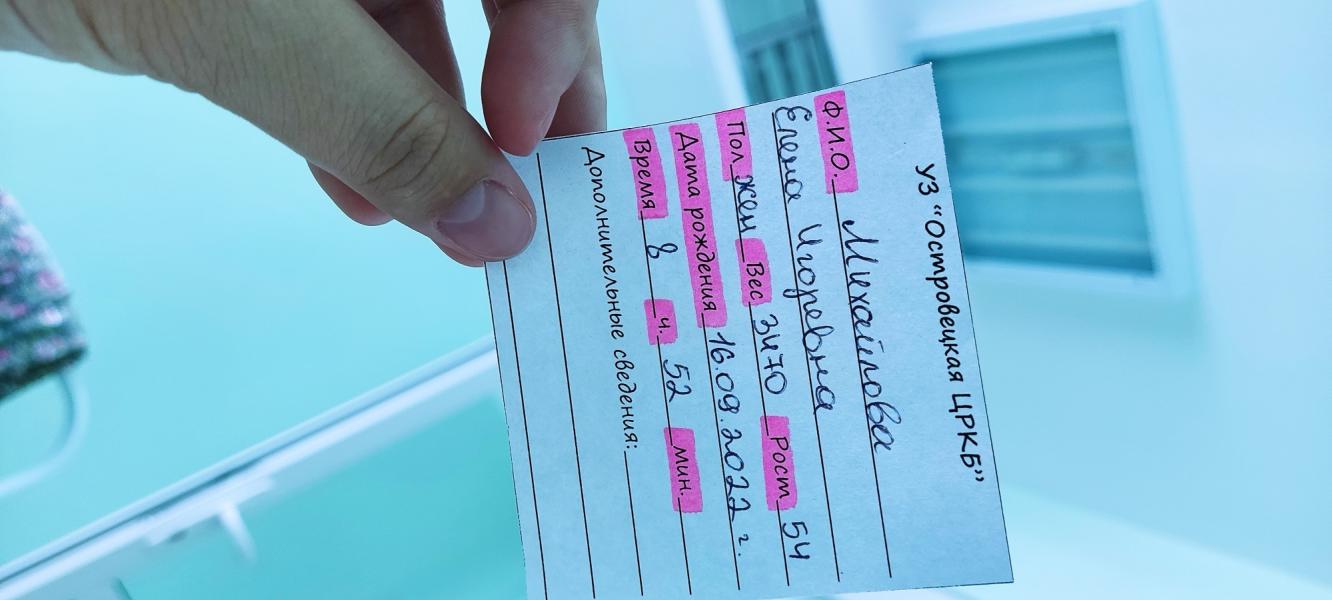 УЗ "Островецкая ЦРКБ"
Ф.И.О. Михайлова
Елена Игоревна
Пол жен Вес 3470 Рост 54
Дата рождения 16.09.2022 г.
Время 8 ч. 52 мин.
Дополнительные сведения: